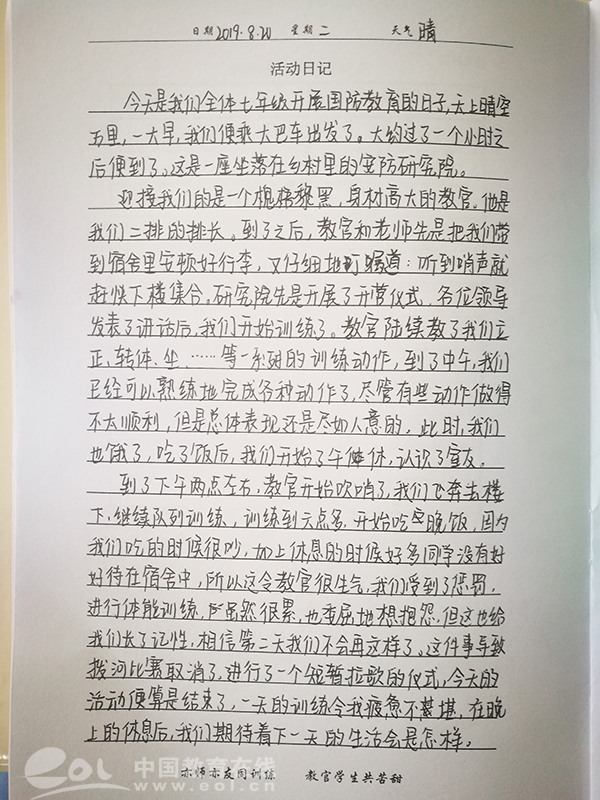 日期 2019.8.20 星期 二 天气 晴
活动日记
今天是我们全体七年级开展国防教育的日子,天上晴空
万里,一大早,我们便乘大巴车出发了。大约过了一个小时之
后便到了。这是一座坐落在乡村里的安防研究院。
迎接我们的是一个黝黑,身材高大的教官。他是
我们二排的排长。到了之后,教官和老师先是把我们带
到宿舍里安顿好行李,又仔细地叮嘱道:听到哨声就
赶快下楼集合。研究院先是开展了开营仪式,各位领导
发表了讲话后,我们开始训练了。教官陆续教了我们立
正、转体、坐……等一系列的训练动作,到了中午,我们
已经可以熟练地完成各种动作了,尽管有些动作做得
不太顺利,但是总体表现还是尽如人意的,此时,我们
也饿了,吃了饭后,我们开始了午休,认识了室友。
到了下午两点左右,教官开始吹哨了,我们飞奔去楼
下,继续队列训练,训练到六点多,开始吃晚饭,因为
我们吃的时候很吵,加上休息的时候好多同学没有好
好待在宿舍中,所以这令教官很生气,我们受到了惩罚,
进行体能训练,虽然很累,也委屈地想抱怨,但这也给
我们长了记性,相信第二天我们不会再这样了。这件事导致
拔河比赛取消了,进行了一个短暂拉歌的仪式,今天的
活动便算是结束了,一天的训练令我疲惫不堪,在晚
上的休息后,我们期待着下一天的生活会是怎样。
亦师亦友同训练 教官学生共苦甜
eol 中国教育在线
www.eol.cn